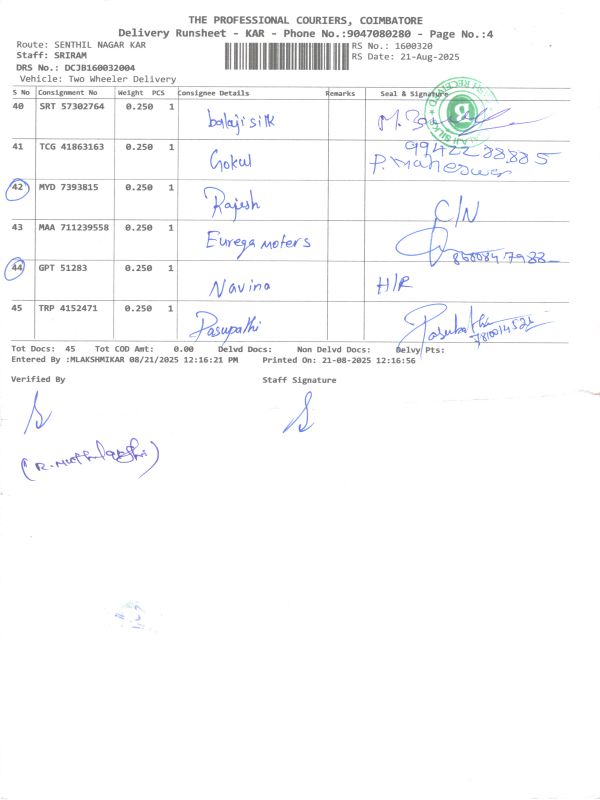 THE PROFESSIONAL COURIERS, COIMBATORE
Delivery Runsheet - KAR - Phone No.:9047080280 - Page No.:4
Route: SENTHIL NAGAR KAR RS No.: 1600320
Staff: SRIRAM RS Date: 21-Aug-2025
DRS No.: DCJB160032004
Vehicle: Two Wheeler Delivery
S No Consignment No Weight PCS Consignee Details Remarks Seal & Signature
40 SRT 57302764 0.250 1 balaji silk
41 TCG 41863163 0.250 1 Gokul 9942288885
P. Maheswar
42 MYD 7393815 0.250 1 Rajesh C/N
43 MAA 711239558 0.250 1 Eurega moters
44 GPT 51283 0.250 1 Navina H/R
45 TRP 4152471 0.250 1 Pasupathi
Tot Docs: 45 Tot COD Amt: 0.00 Delvd Docs: Non Delvd Docs: Delvy Pts:
Entered By :MLAKSHMIKAR 08/21/2025 12:16:21 PM Printed On: 21-08-2025 12:16:56
Verified By Staff Signature